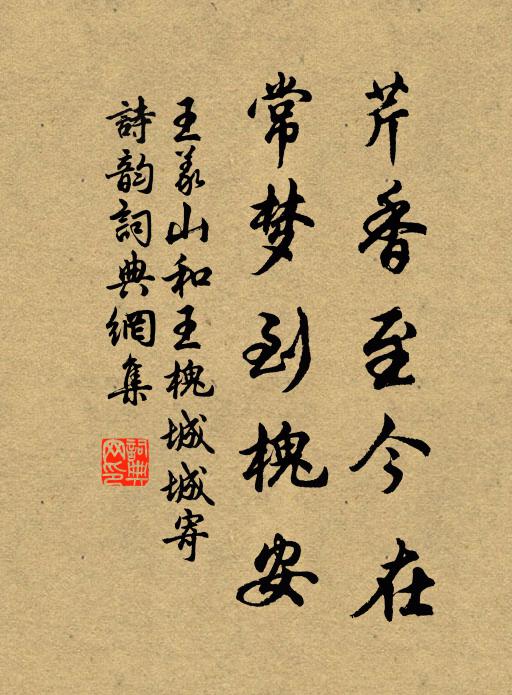 芹香至今在
常梦到槐安
王义山和王槐城城寄
詩韵詞典網集
詞典网印